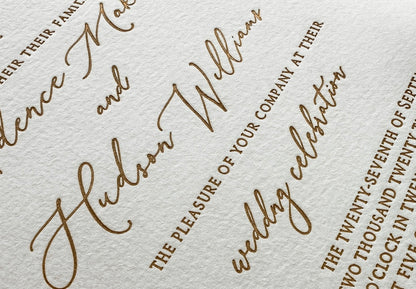 THEIR FAMIL
and
Hudson Williams
THE PLEASURE OF YOUR COMPANY AT THEIR
wedding celebration
THE TWENTY-SEVENTH OF SEPT
TWO THOUSAND TWENTY
O'CLOCK IN